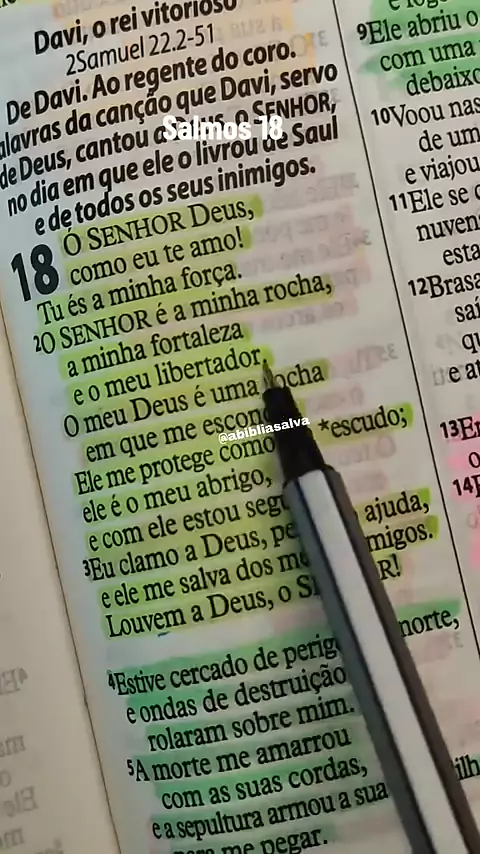 Davi, o rei vitorioso
2Samuel 22.2-51
De Davi. Ao regente do coro.
alavras da canção que Davi, servo
de Deus, cantou a o SENHOR,
no dia em que ele o livrou de Saul
e de todos os seus inimigos.
Salmos 18
18 Ó SENHOR Deus,
como eu te amo!
Tu és a minha força.
2O SENHOR é a minha rocha,
a minha fortaleza
e o meu libertador.
O meu Deus é uma rocha
em que me escon
@abibliasalva
Ele me protege como *escudo;
ele é o meu abrigo,
e com ele estou seg
3Eu clamo a Deus, pe ajuda,
e ele me salva dos me migos.
Louvem a Deus, o S R!
4Estive cercado de perig morte,
e ondas de destruição
rolaram sobre mim.
5A morte me amarrou
com as suas cordas,
e a sepultura armou a sua ilh
me pegar.
9Ele abriu o
com uma
debaixo
10Voou nas
de um
e viajou
11Ele se c
nuven
esta
12Brasa
saí
qu
e at
13En
o
14